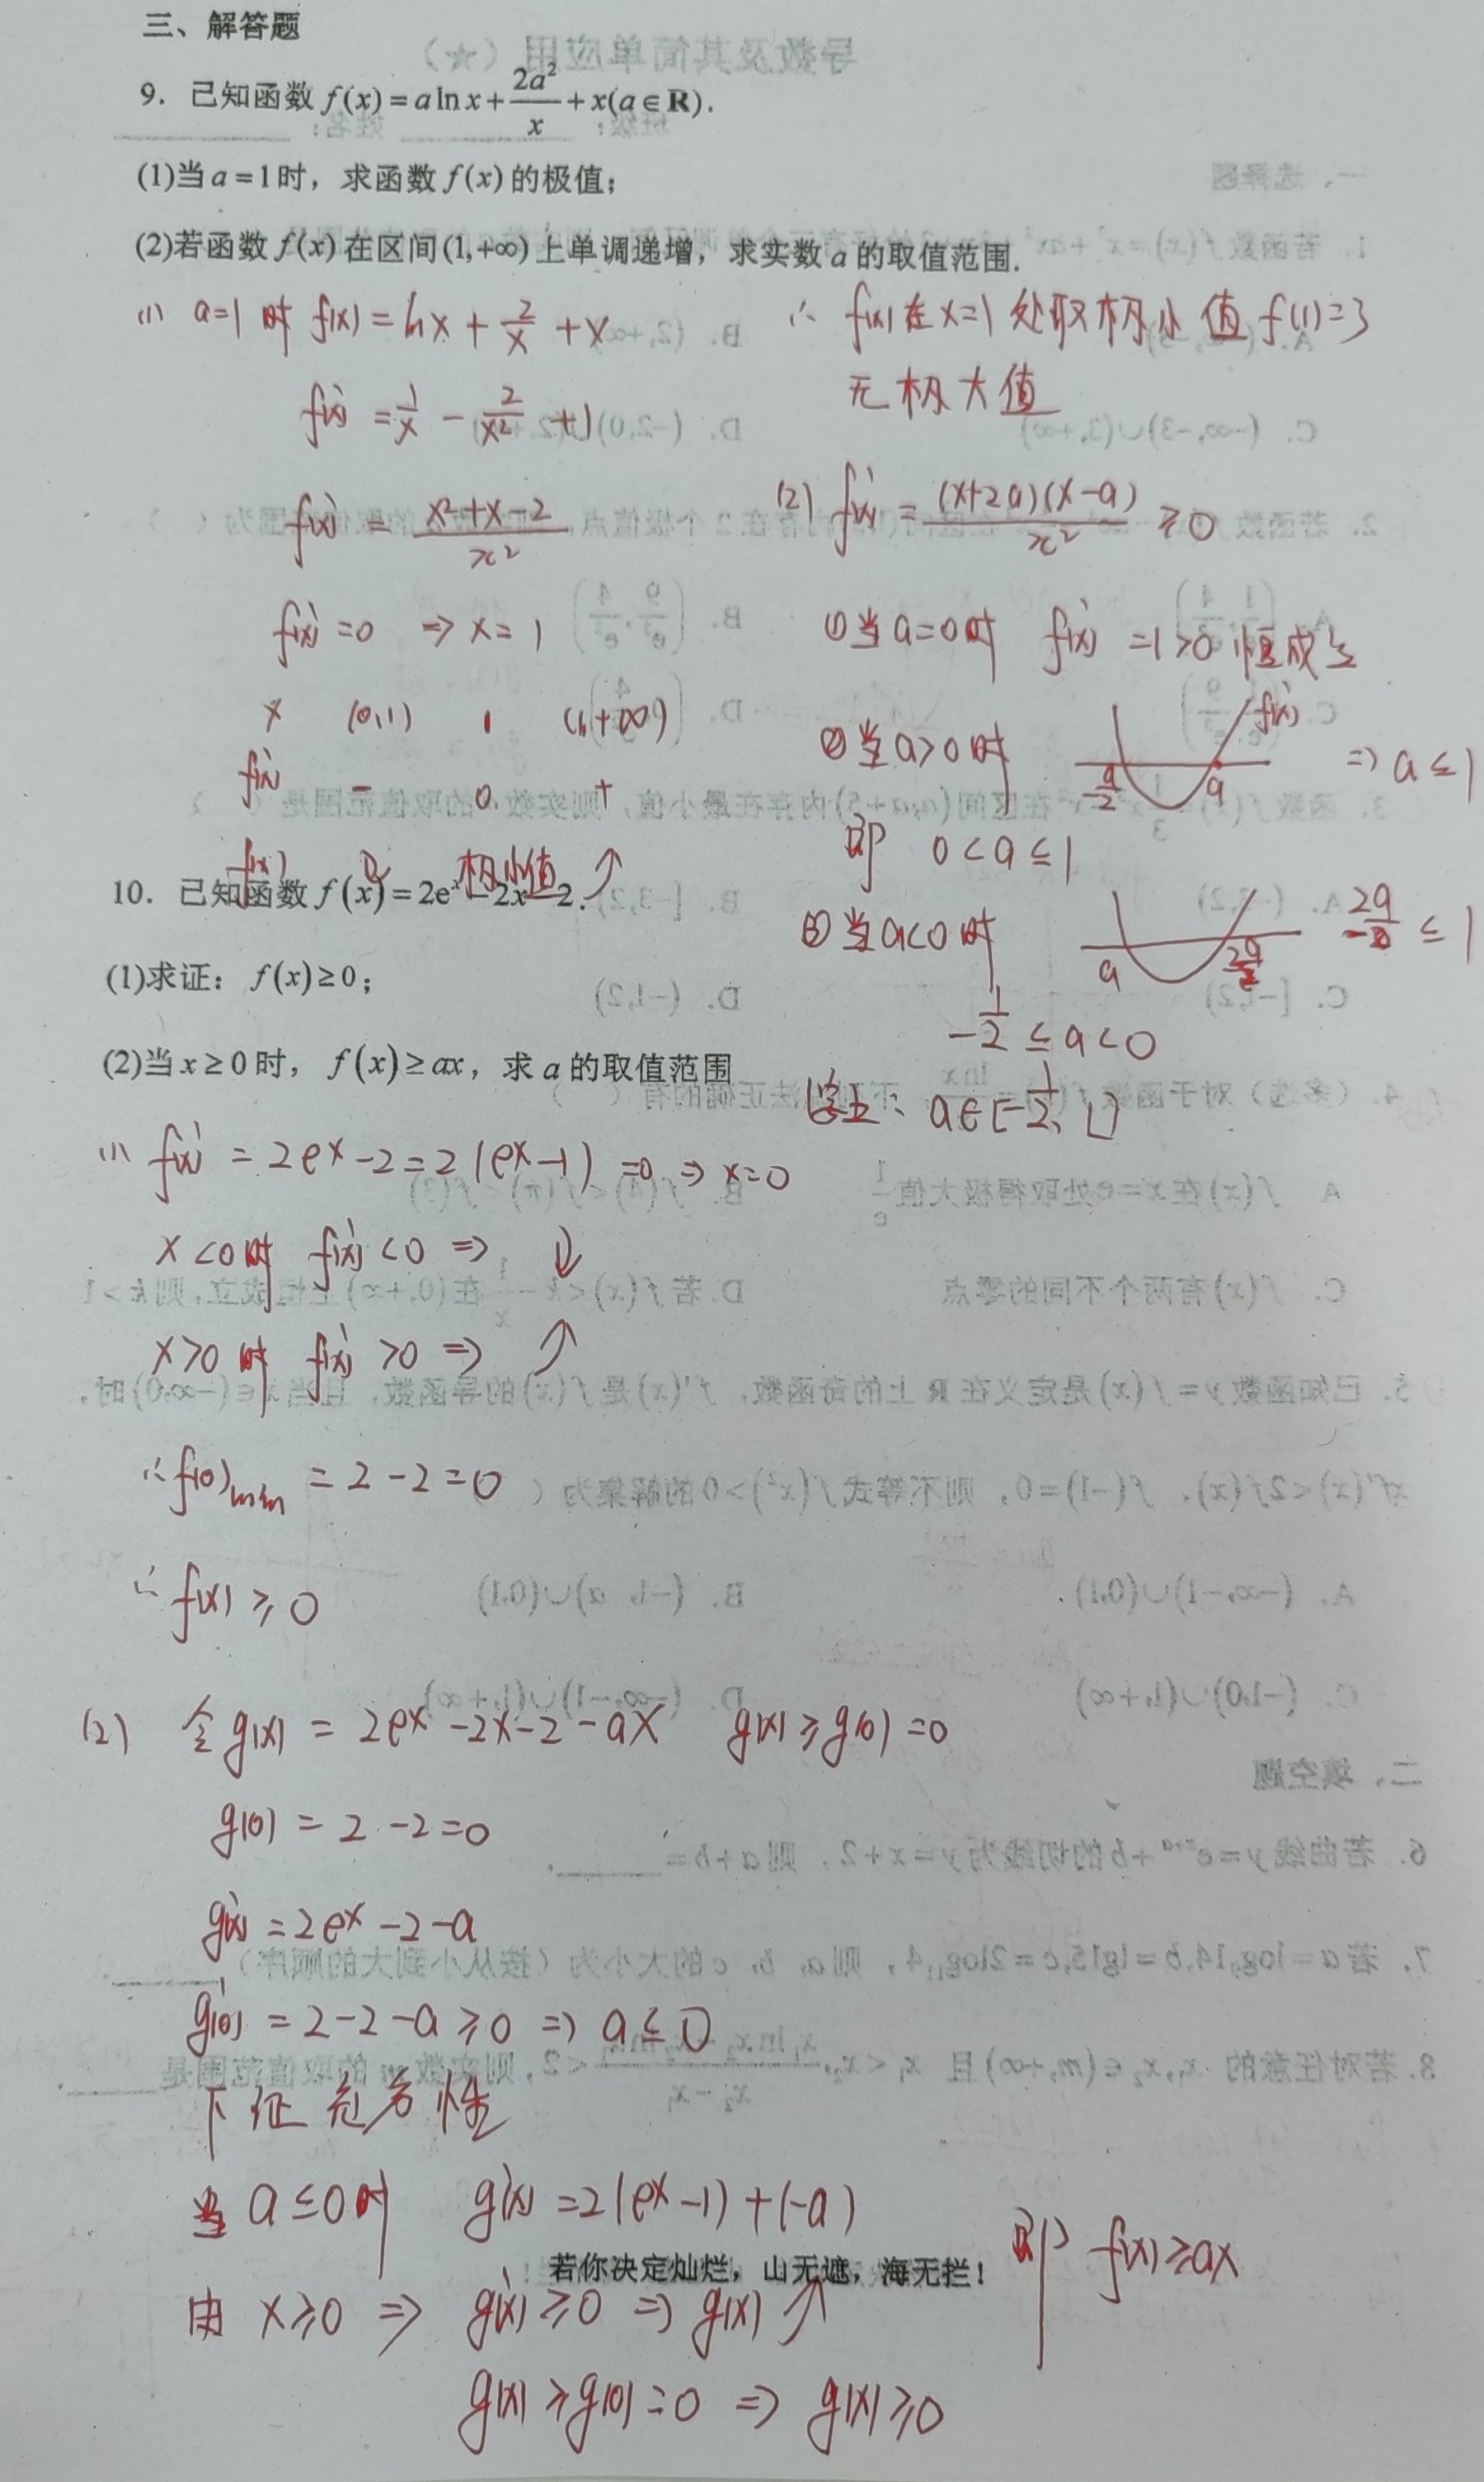 三、解答题
9. 已知函数 f(x)=alnx+2a²/x+x(a∈R).
(1)当a=1时，求函数f(x)的极值；
(2)若函数f(x)在区间(1,+∞)上单调递增，求实数a的取值范围.
(1) a=1时 f(x)=lnx+2/x+x
f'(x)=1/x-2/x²+1
f'(x)=(x²+x-2)/x²
f'(x)=0 ⇒x=1
x (0,1) 1 (1,+∞)
f'(x) - 0 +
f(x) ↓ 极小值 ↗
∴ f(x)在x=1处取极小值f(1)=3
无极大值
(2) f'(x)=(x+2a)(x-a)/x² ≥0
①当a=0时 f'(x)=1>0 恒成立
②当a>0时 f'(x) a ⇒a≤1
即 0<a≤1
③当a<0时 a ≤1
-1/2≤a<0
综上：a∈[-1/2,1]
10. 已知函数f(x)=2eˣ-2x-2.
(1)求证：f(x)≥0；
(2)当x≥0时，f(x)≥ax，求a的取值范围
(1) f'(x)=2eˣ-2=2(eˣ-1)=0⇒x=0
x<0时 f'(x)<0⇒ ↓
x>0时 f'(x)>0⇒ ↗
∴f(0)min=2-2=0
∴f(x)≥0
(2) 令g(x)=2eˣ-2x-2-ax g(x)≥g(0)=0
g(0)=2-2=0
g'(x)=2eˣ-2-a
g'(0)=2-2-a≥0⇒a≤0
下证充分性
当a≤0时 g'(x)=2(eˣ-1)+(-a)
若你决定灿烂，山无遮，海无拦！
由x≥0⇒ g'(x)≥0⇒g(x)↗
g(x)≥g(0)=0⇒g(x)≥0
即 f(x)≥ax